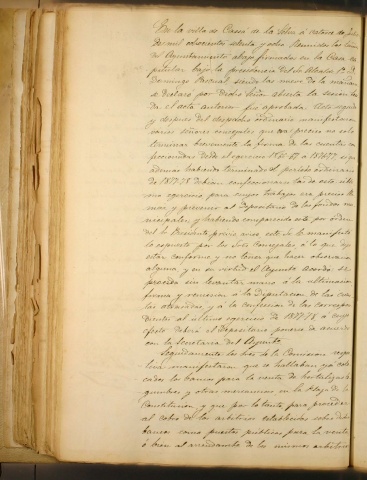 En la villa de Casas de la Selva a catorce de Julio
de mil ochocientos setenta y ocho Reunidos los Señores
del Ayuntamiento abajo firmados en la Casa Ca
pitular bajo la presidencia del Sr. Alcalde
Domingo Pascual siendo las nueve de la mañana
se declaró por dicho Señor abierta la sesion leí
da el acta anterior fué aprobada. Acto seguido
y despues del despacho ordinario manifestaron
varios señores concejales que era preciso no solo
terminar brevemente la forma de las cuentas
desde el ejercicio 1866-67 á 1876-77 sino que
ademas habiendo terminado el periodo ordinario
de 1877-78 debian confeccionarse las de este últi
mo ejercicio, para cuyos trabajos era preciso
y prevenir al Depositario de los fondos mu
nicipales, y habiendo comparecido este por órden
del Sr Presidente previo aviso este se le manifestó
lo expuesto por los Sres Concejales á lo que dijo
estar conforme y no tener que hacer observacion
alguna, y en su virtud el Ayunto. Acordó: se
proceda sin levantar mano á la ultimacion
forma y remision á la Diputacion de las cuen
tas atrasadas, y á la confeccion de las correspon
dientes al ultimo ejercicio de 1877-78 á cuyo
efecto deberá el Depositario ponerse de acuerdo
con la Secretaria del Ayunto.
Seguidamente los Sres de la Comision respec
tiva manifestaron que se hallaban ya colo
cados los bancos para la venta de hortalizas le
gumbres y otras mercancias en la Plaza de la
Constitucion, y que por lo tanto para proceder
al cobro de los arbitrios establecidos sobre dichos
bancos como puestos públicos para la venta
ó bien al arrendamto. de los mismos arbitrios